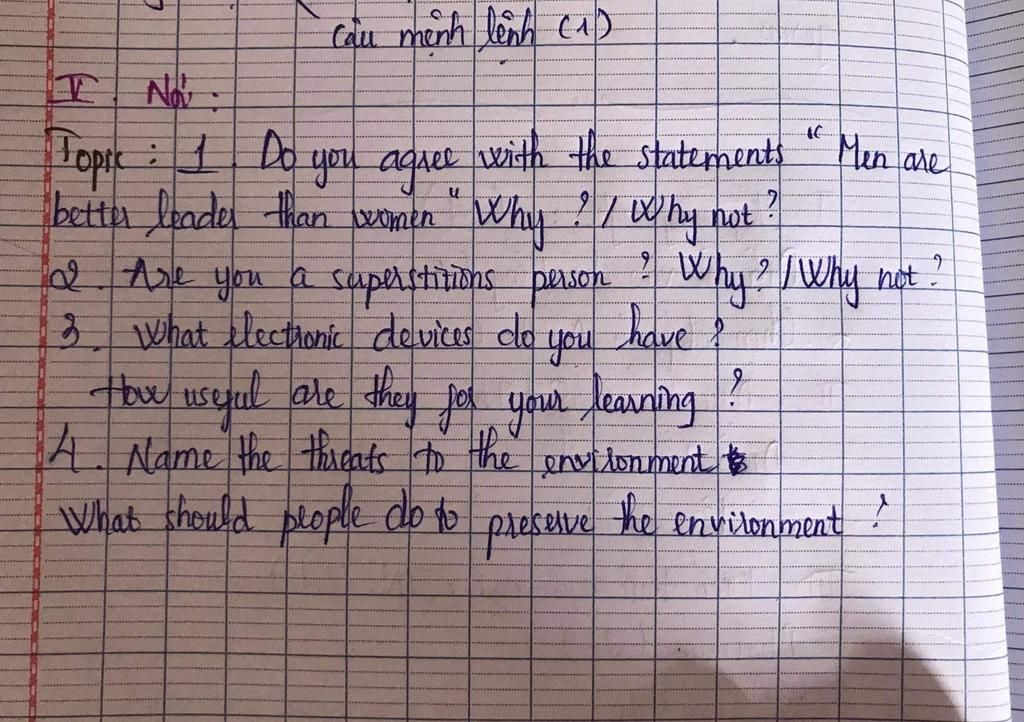 Câu mệnh lệnh (1)
V. Nói:
Topic: 1. Do you agree with the statements "Men are
better leader than women" Why ? / Why not ?
2. Are you a superstitions person ? Why? / Why not ?
3. What electronic devices do you have ?
How useful are they for your learning ?
4. Name the threats to the environment
What should people do to preserve the environment ?